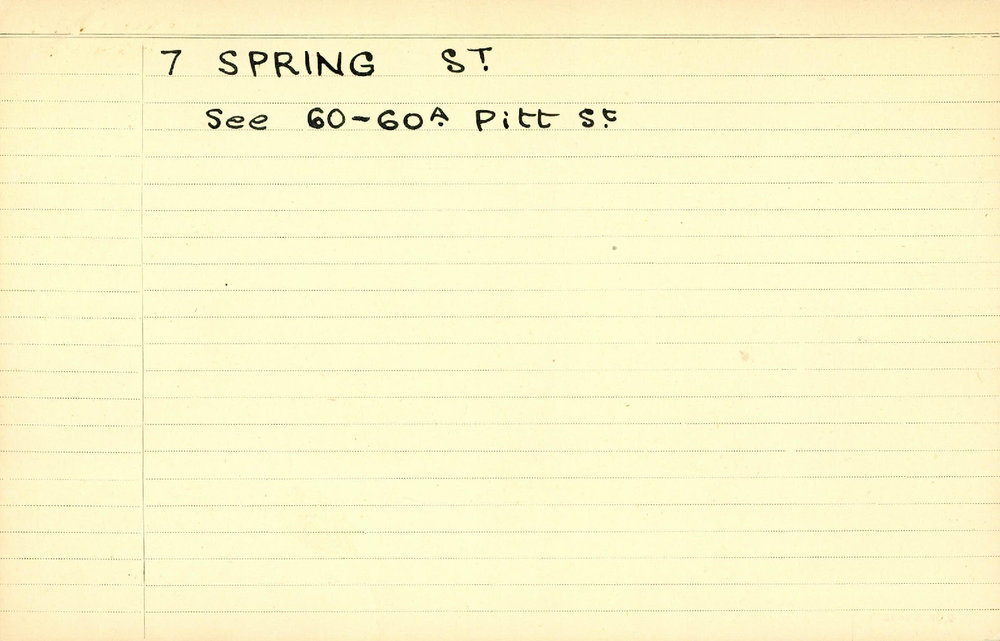 7 SPRING ST.
See 60-60A Pitt St